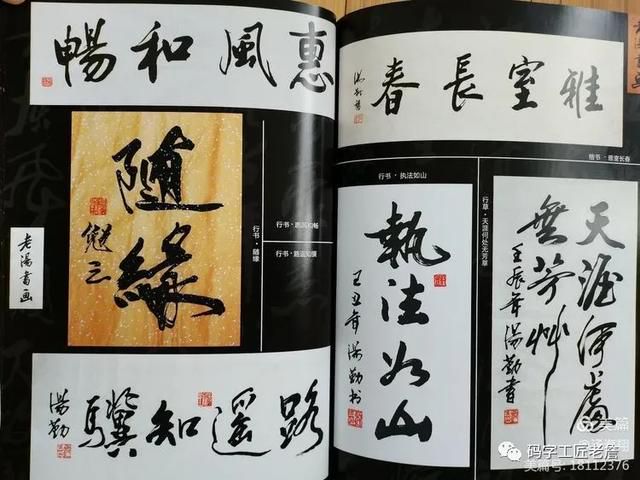 惠風和暢
隨緣
行书·惠风和畅
行书·路遥知骥
行书·随缘
老湯書画
路遥知驥
湯勤
雅室長春
楷书·雅室长春
行书·执法如山
執法如山
丁丑年湯勤书
行草·天涯何处无芳草
天涯何處
無芳艸
壬辰年湯勤書
美篇
码字工匠老詹
美篇号: 18112376